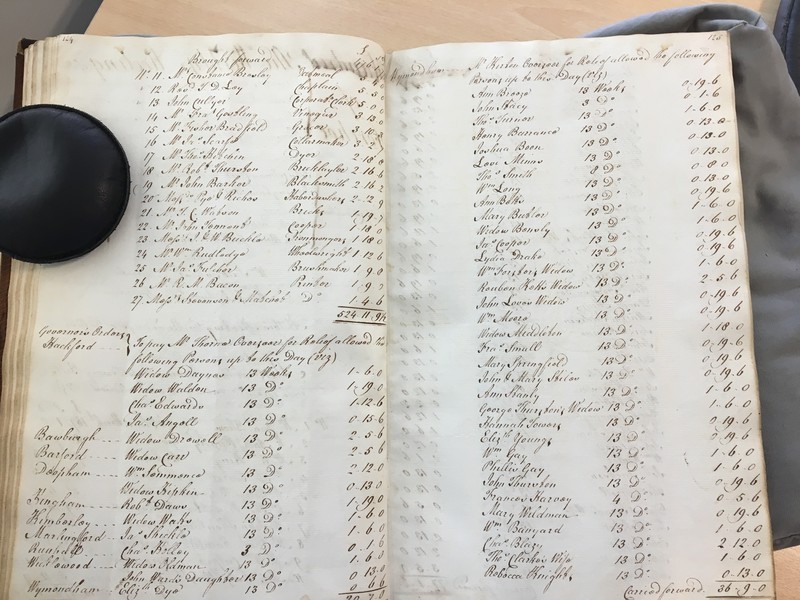 124
Brought forward
No. 11 Mr. Constance Brawley
12 Revd. T. D. Loy Chaplain 5 5 0
13 John Culyer Corporatn. Clerk 5 0 0
14 Mr. Fras. Gostling 3 13 0
15 Mr. Fisher Bradfield Grocer 3 10
16 Mr. Jas. Scarfe 3 2
17 Mr. Thos. Kitchin Dyer 2 18
18 Mr. Robt. Thurston Bricklayer 2 16
19 Mr. John Barker Blacksmith 2 16 2
20 Messrs. Haberdashers 2 12 9
21 Mr. T. C. Watson Bricks 1 19
22 Mr. John Tomont Cooper 1 18 0
23 Messrs. J & W Brickle Ironmongers 1 18 0
24 Mr. Wm. Rudledge 1 12 6
25 Mr. Jas. Fulcher Brushmaker 1 9 0
26 Mr. R. M. Bacon Printer 1 9
27 Messrs. Stevenson & Matchett Do. 1 4 6
524 11
Governor's Orders
Hackford To pay Mr. Thorne Overseer for Relief allowed the
following Persons up to this Day (Viz)
Widow Daynes 13 Weeks 1-6-0
Widow Waldon 13 Do. 1-19-0
Chas. Edwards 13 Do. 1-12-6
Jas. Angell 13 Do. 0-15-6
Bawburgh Widow Drewell 13 Do. 2-5-6
Barford Widow Care 13 Do. 2-5-6
Deopham Wm. Sommance 13 Do. 2-12-0
Widow Stephen 13 Do. 0-13-0
Hingham Robt. Daws 13 Do. 1-19-0
Kimberley Widow Works 13 Do. 1-6-0
Marlingford Jas. Shickle 13 Do. 1-6-0
Runhall Chas. Kelley 3 Do. 0
Wicklewood Widow Kidman 13 Do. 1-6-0
John Ward's Daughter 13 Do. 0 13 0
Wymondham Elizth. Dye 13 Do. 0 6 6
125
Wymondham Mr. Kirbon Overseer for Relief allowed the following
Persons up to this Day (Viz)
Ann Breeze 13 Weeks 0-19-6
John Stacy 3 Do. 0-1-6
Thos. Turner 13 Do. 1-6-0
Henry Barrance 13 Do. 0-13-0
Joshua Boon 13 Do. 0-13-0
Love Minns 13 Do. 0-13-0
Thos. Smith 8 Do. 0-8-0
Wm. Long 13 Do. 0-13-0
Ann Betts 13 Do. 0-19-6
Mary Butter 13 Do. 1-6-0
Widow Bensly 13 Do. 1-6-0
Jas. Cooper 13 Do. 0-19-6
Lydia Drake 13 Do. 0-19-6
Wm. Forster's Widow 13 Do. 1-6-0
Reuben Kett's Widow 13 Do. 2-5-6
John Love's Widow 13 Do. 0-19-6
Wm. Moore 13 Do. 0-19-6
Widow Middleton 13 Do. 1-18-0
Fras. Small 13 Do. 0-19-6
Mary Springfield 13 Do. 0-19-6
John & Mary Skelos 13 Do. 0-19-6
Ann Stanly 13 Do. 1-6-0
George Thurston's Widow 13 Do. 1-6-0
Hannah Towers 13 Do. 0-19-6
Elizth. Youngs 13 Do. 0-19-6
Wm. Gay 13 Do. 1-6-0
Phillis Gay 13 Do. 1-6-0
John Thurston 13 Do. 0-19-6
Frances Harvey 4 Do. 0 5 6
Mary Wildman 13 Do. 0 19 6
Wm. Banyard 13 Do. 1 6 0
Chas. Blazy 13 Do. 2 12 0
Thos. Clarke's Wife 13 Do. 1 6 0
Rebecca Knights 13 Do. 0-13-0
Carried forward 36-9-0